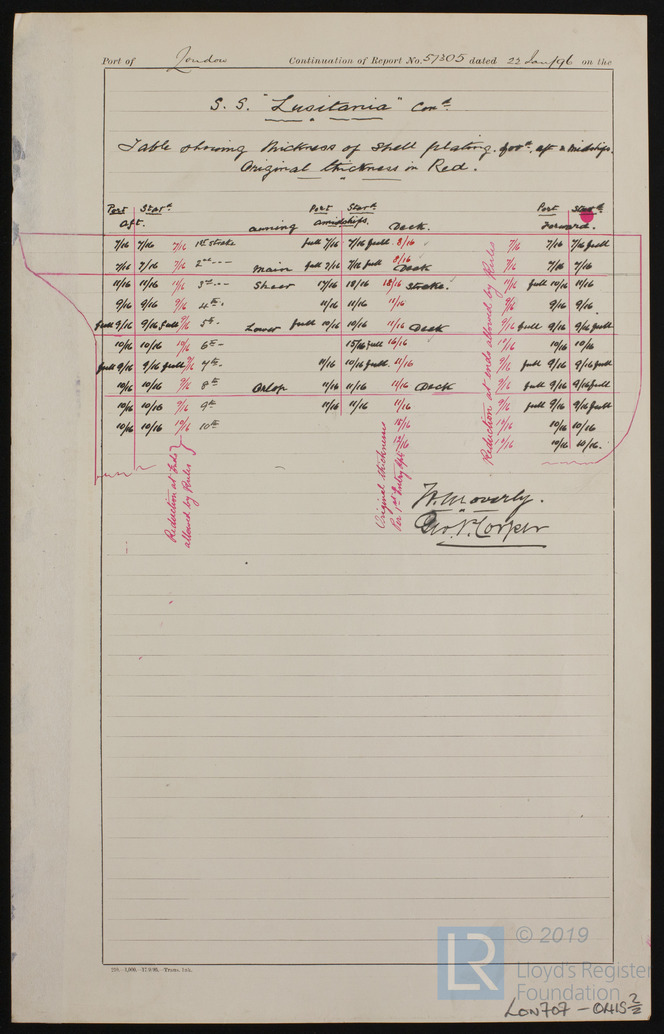 Port of London Continuation of Report No. 57305 dated 22 Jan/96 on the
S. S. "Lusitania" Con^d.
Table showing thickness of shell plating. for^d. aft & midships.
Original thickness in Red.
Port Star^d. Port Star^d. Port Star^d.
aft. awning amidships. Deck. Forward.
7/16 7/16 7/16 1st Strake full 7/16 7/16 full 8/16 7/16 7/16 7/16 full
7/16 7/16 7/16 2nd -- main full 7/16 7/16 full 8/16 Deck 7/16 7/16 7/16
11/16 11/16 11/16 3rd -- Sheer 17/16 18/16 18/16 Strake. 11/16 full 10/16 11/16
9/16 9/16 9/16 4th " 11/16 11/16 11/16 9/16 9/16 9/16
full 9/16 9/16 full 9/16 5th - Lower full 10/16 10/16 11/16 Deck 9/16 full 9/16 9/16 full
10/16 10/16 10/16 6th - 15/16 full 16/16 10/16 10/16 10/16
full 9/16 9/16 full 9/16 7th - 11/16 10/16 full 11/16 9/16 full 9/16 9/16 full
10/16 10/16 9/16 8th Orlop 11/16 11/16 11/16 Deck 9/16 full 9/16 9/16 full
10/16 10/16 9/16 9th 11/16 11/16 11/16 9/16 full 9/16 9/16 full
10/16 10/16 10/16 10th 10/16 10/16
10/16 10/16.
Reduction at Ends
allowed by Rules
Original thickness
Per 1st Entry Rpt.
Reduction at ends allowed by Rules
W. Moverly.
Geo. N. Corper
© 2019
LR
Lloyd's Register
Foundation
LON707 - 0415 2/2